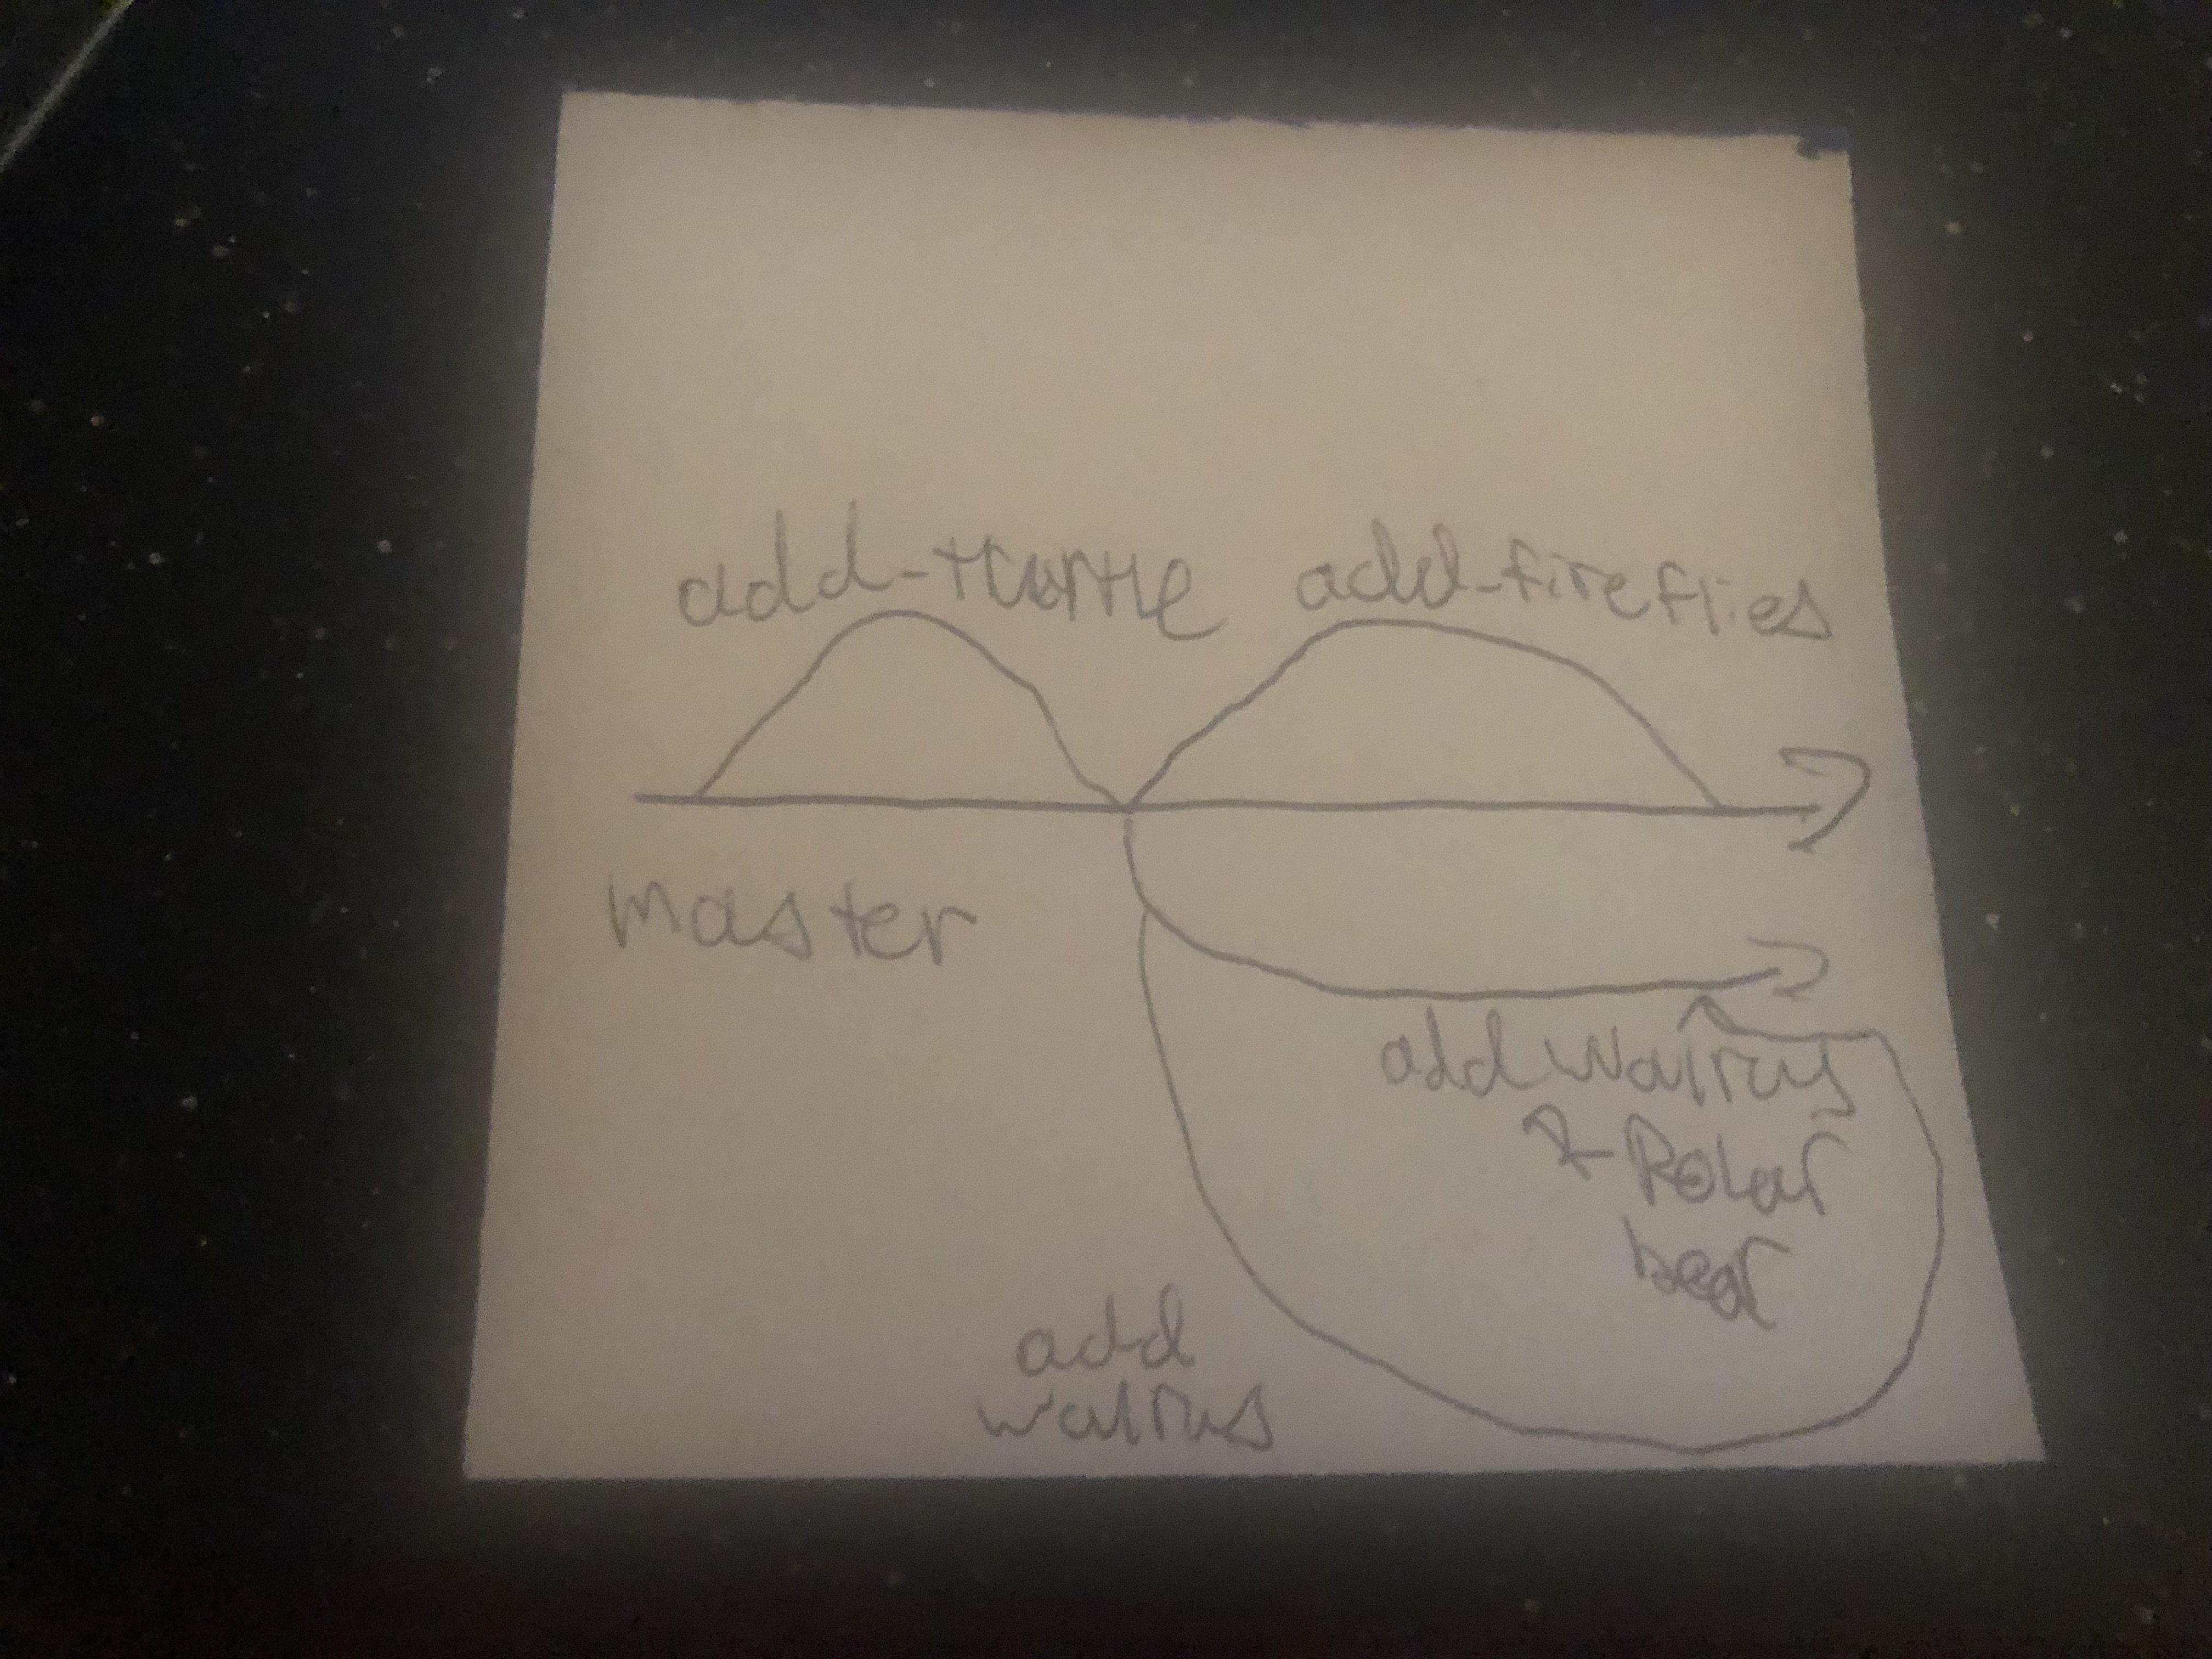 add-turtle add-fireflies
master
add walrus
& polar
bear
add
walrus